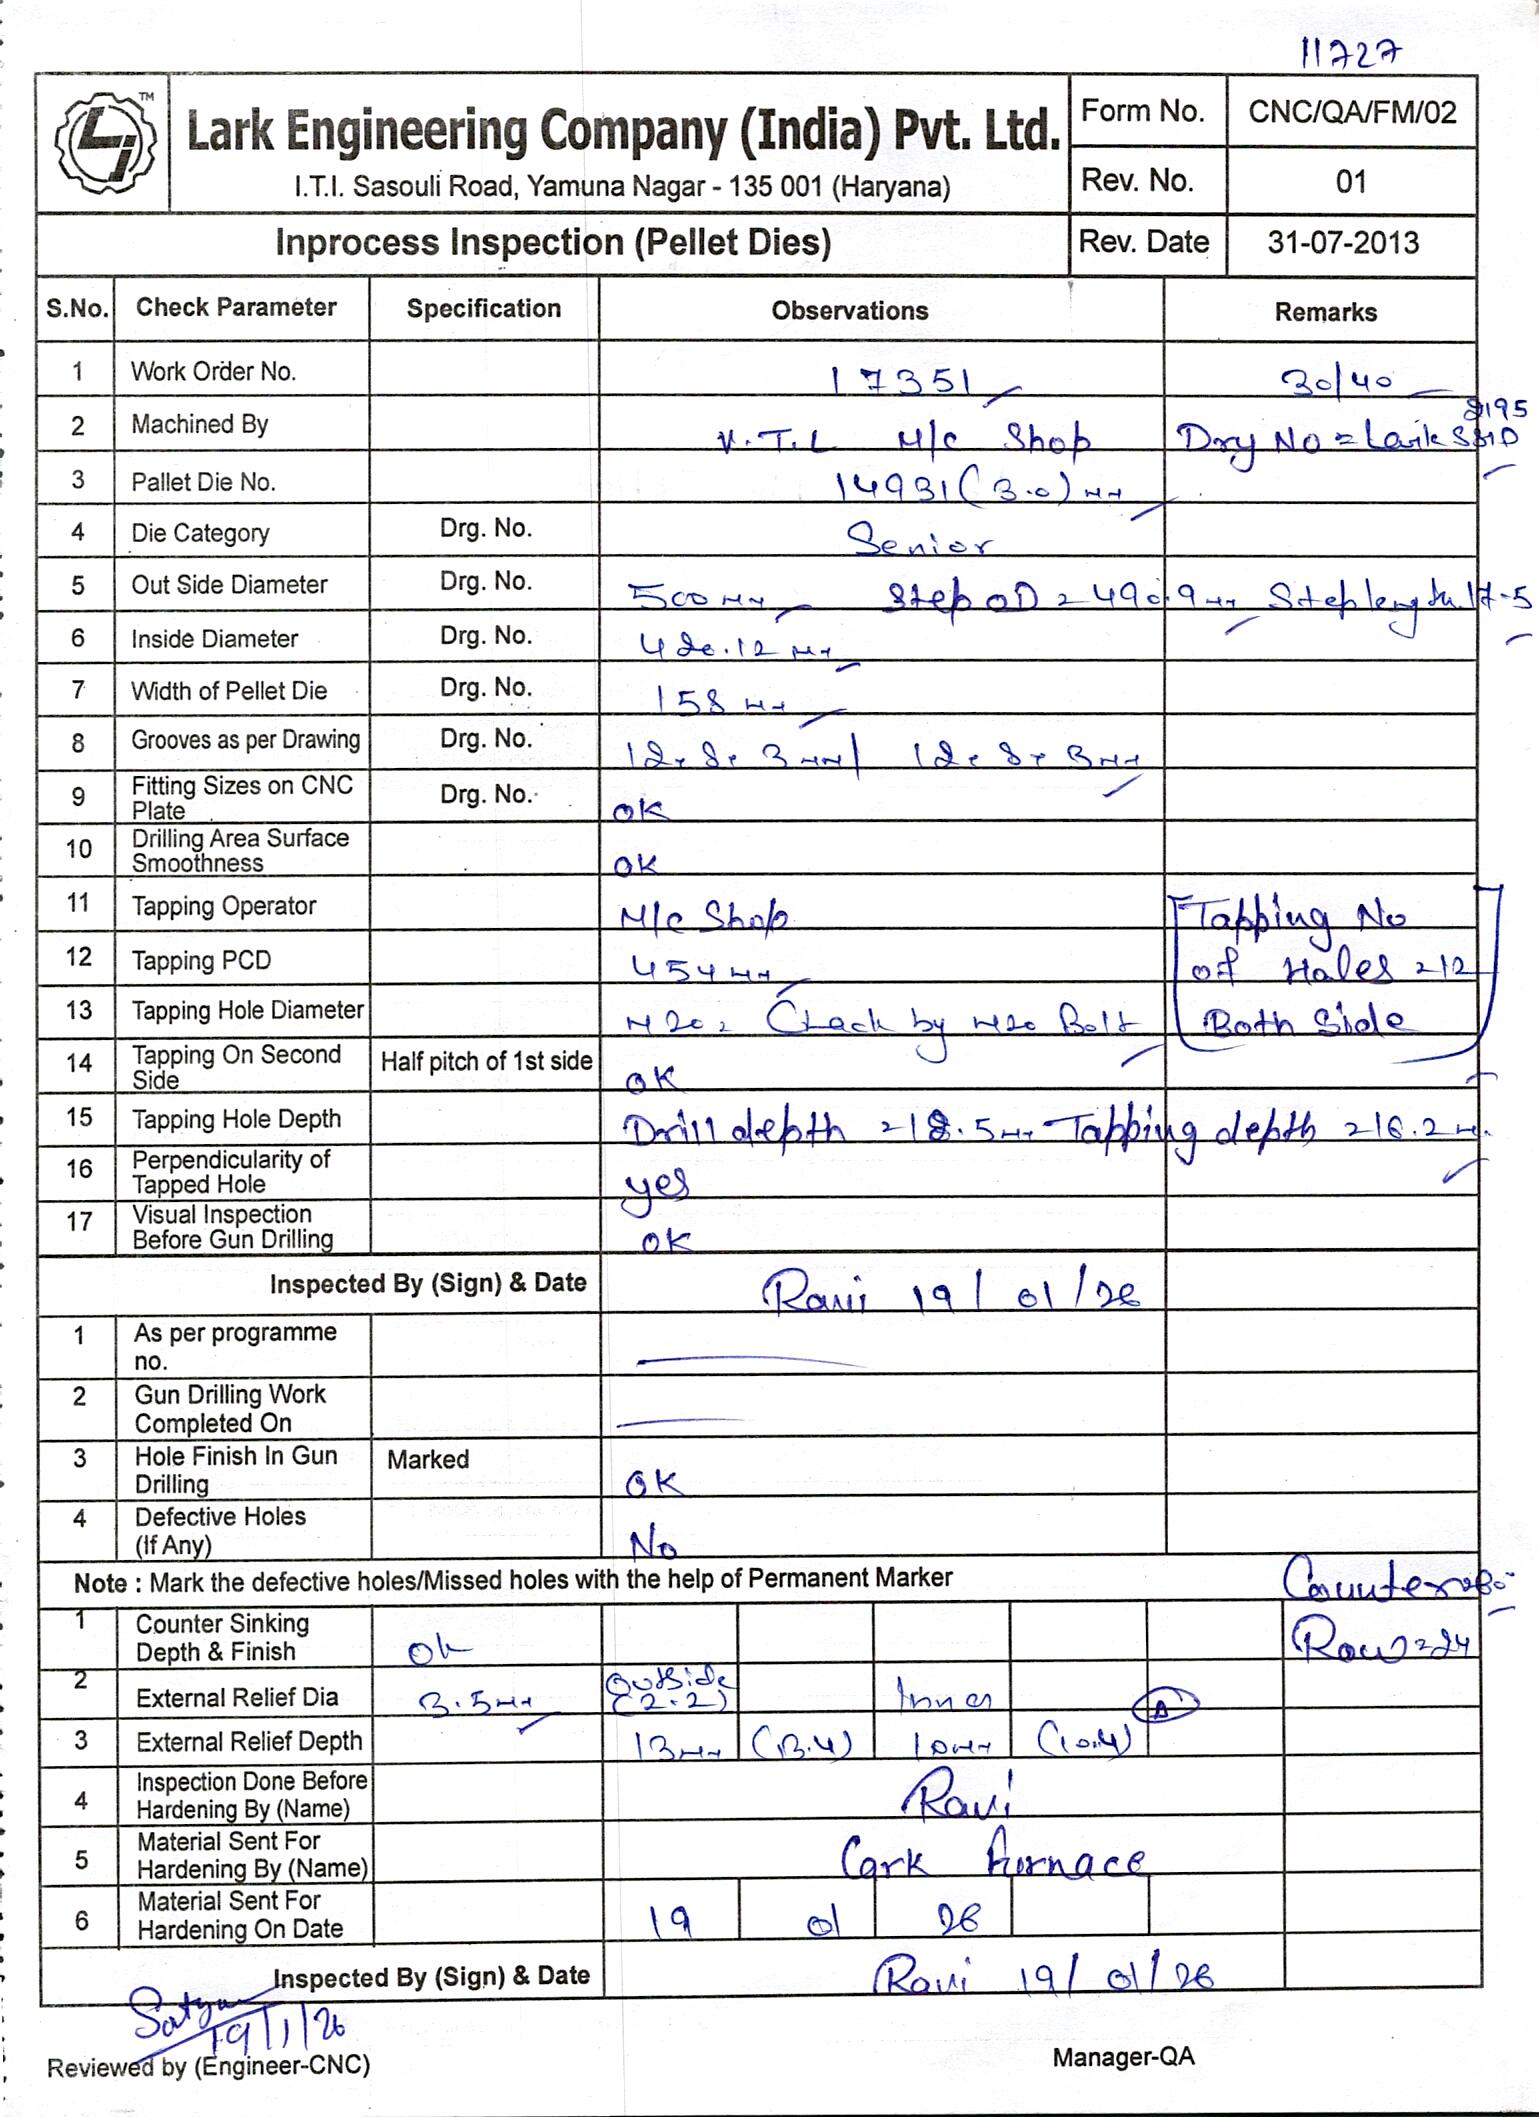 11727
LI TM
Lark Engineering Company (India) Pvt. Ltd.
I.T.I. Sasouli Road, Yamuna Nagar - 135 001 (Haryana)
Form No. CNC/QA/FM/02
Rev. No. 01
Inprocess Inspection (Pellet Dies) Rev. Date 31-07-2013
S.No. Check Parameter Specification Observations Remarks
1 Work Order No. 17351 30/40
2 Machined By V.T.L M/c Shop Dry No = Lark
3 Pallet Die No. 14931 (3.0) mm
4 Die Category Drg. No. Senior
5 Out Side Diameter Drg. No. 500 mm Step OD = 490.9 mm Step length 17.5
6 Inside Diameter Drg. No. 420.12 mm
7 Width of Pellet Die Drg. No. 158 mm
8 Grooves as per Drawing Drg. No. 12 × 8 × 3 mm / 12 × 8 × 3 mm
9 Fitting Sizes on CNC Plate Drg. No. OK
10 Drilling Area Surface Smoothness OK
11 Tapping Operator M/c Shop Tapping No
12 Tapping PCD 454 mm of Holes = 12
13 Tapping Hole Diameter M20 = Chack by M20 Bolt Both Side
14 Tapping On Second Side Half pitch of 1st side OK
15 Tapping Hole Depth Drill depth = 18.5 mm Tapping depth = 16.2 m.
16 Perpendicularity of Tapped Hole yes
17 Visual Inspection Before Gun Drilling OK
Inspected By (Sign) & Date Ravi 19/01/26
1 As per programme no.
2 Gun Drilling Work Completed On
3 Hole Finish In Gun Drilling Marked OK
4 Defective Holes (If Any) No
Note : Mark the defective holes/Missed holes with the help of Permanent Marker
1 Counter Sinking Depth & Finish OK Row = 24
2 External Relief Dia 3.5 mm Outside (2.2) Inner A
3 External Relief Depth 13 mm (13.4) 10 mm (10.4)
4 Inspection Done Before Hardening By (Name) Ravi
5 Material Sent For Hardening By (Name) Lark furnace
6 Material Sent For Hardening On Date 19 01 26
Inspected By (Sign) & Date Ravi 19/01/26
Satya
19/1/26
Reviewed by (Engineer-CNC) Manager-QA